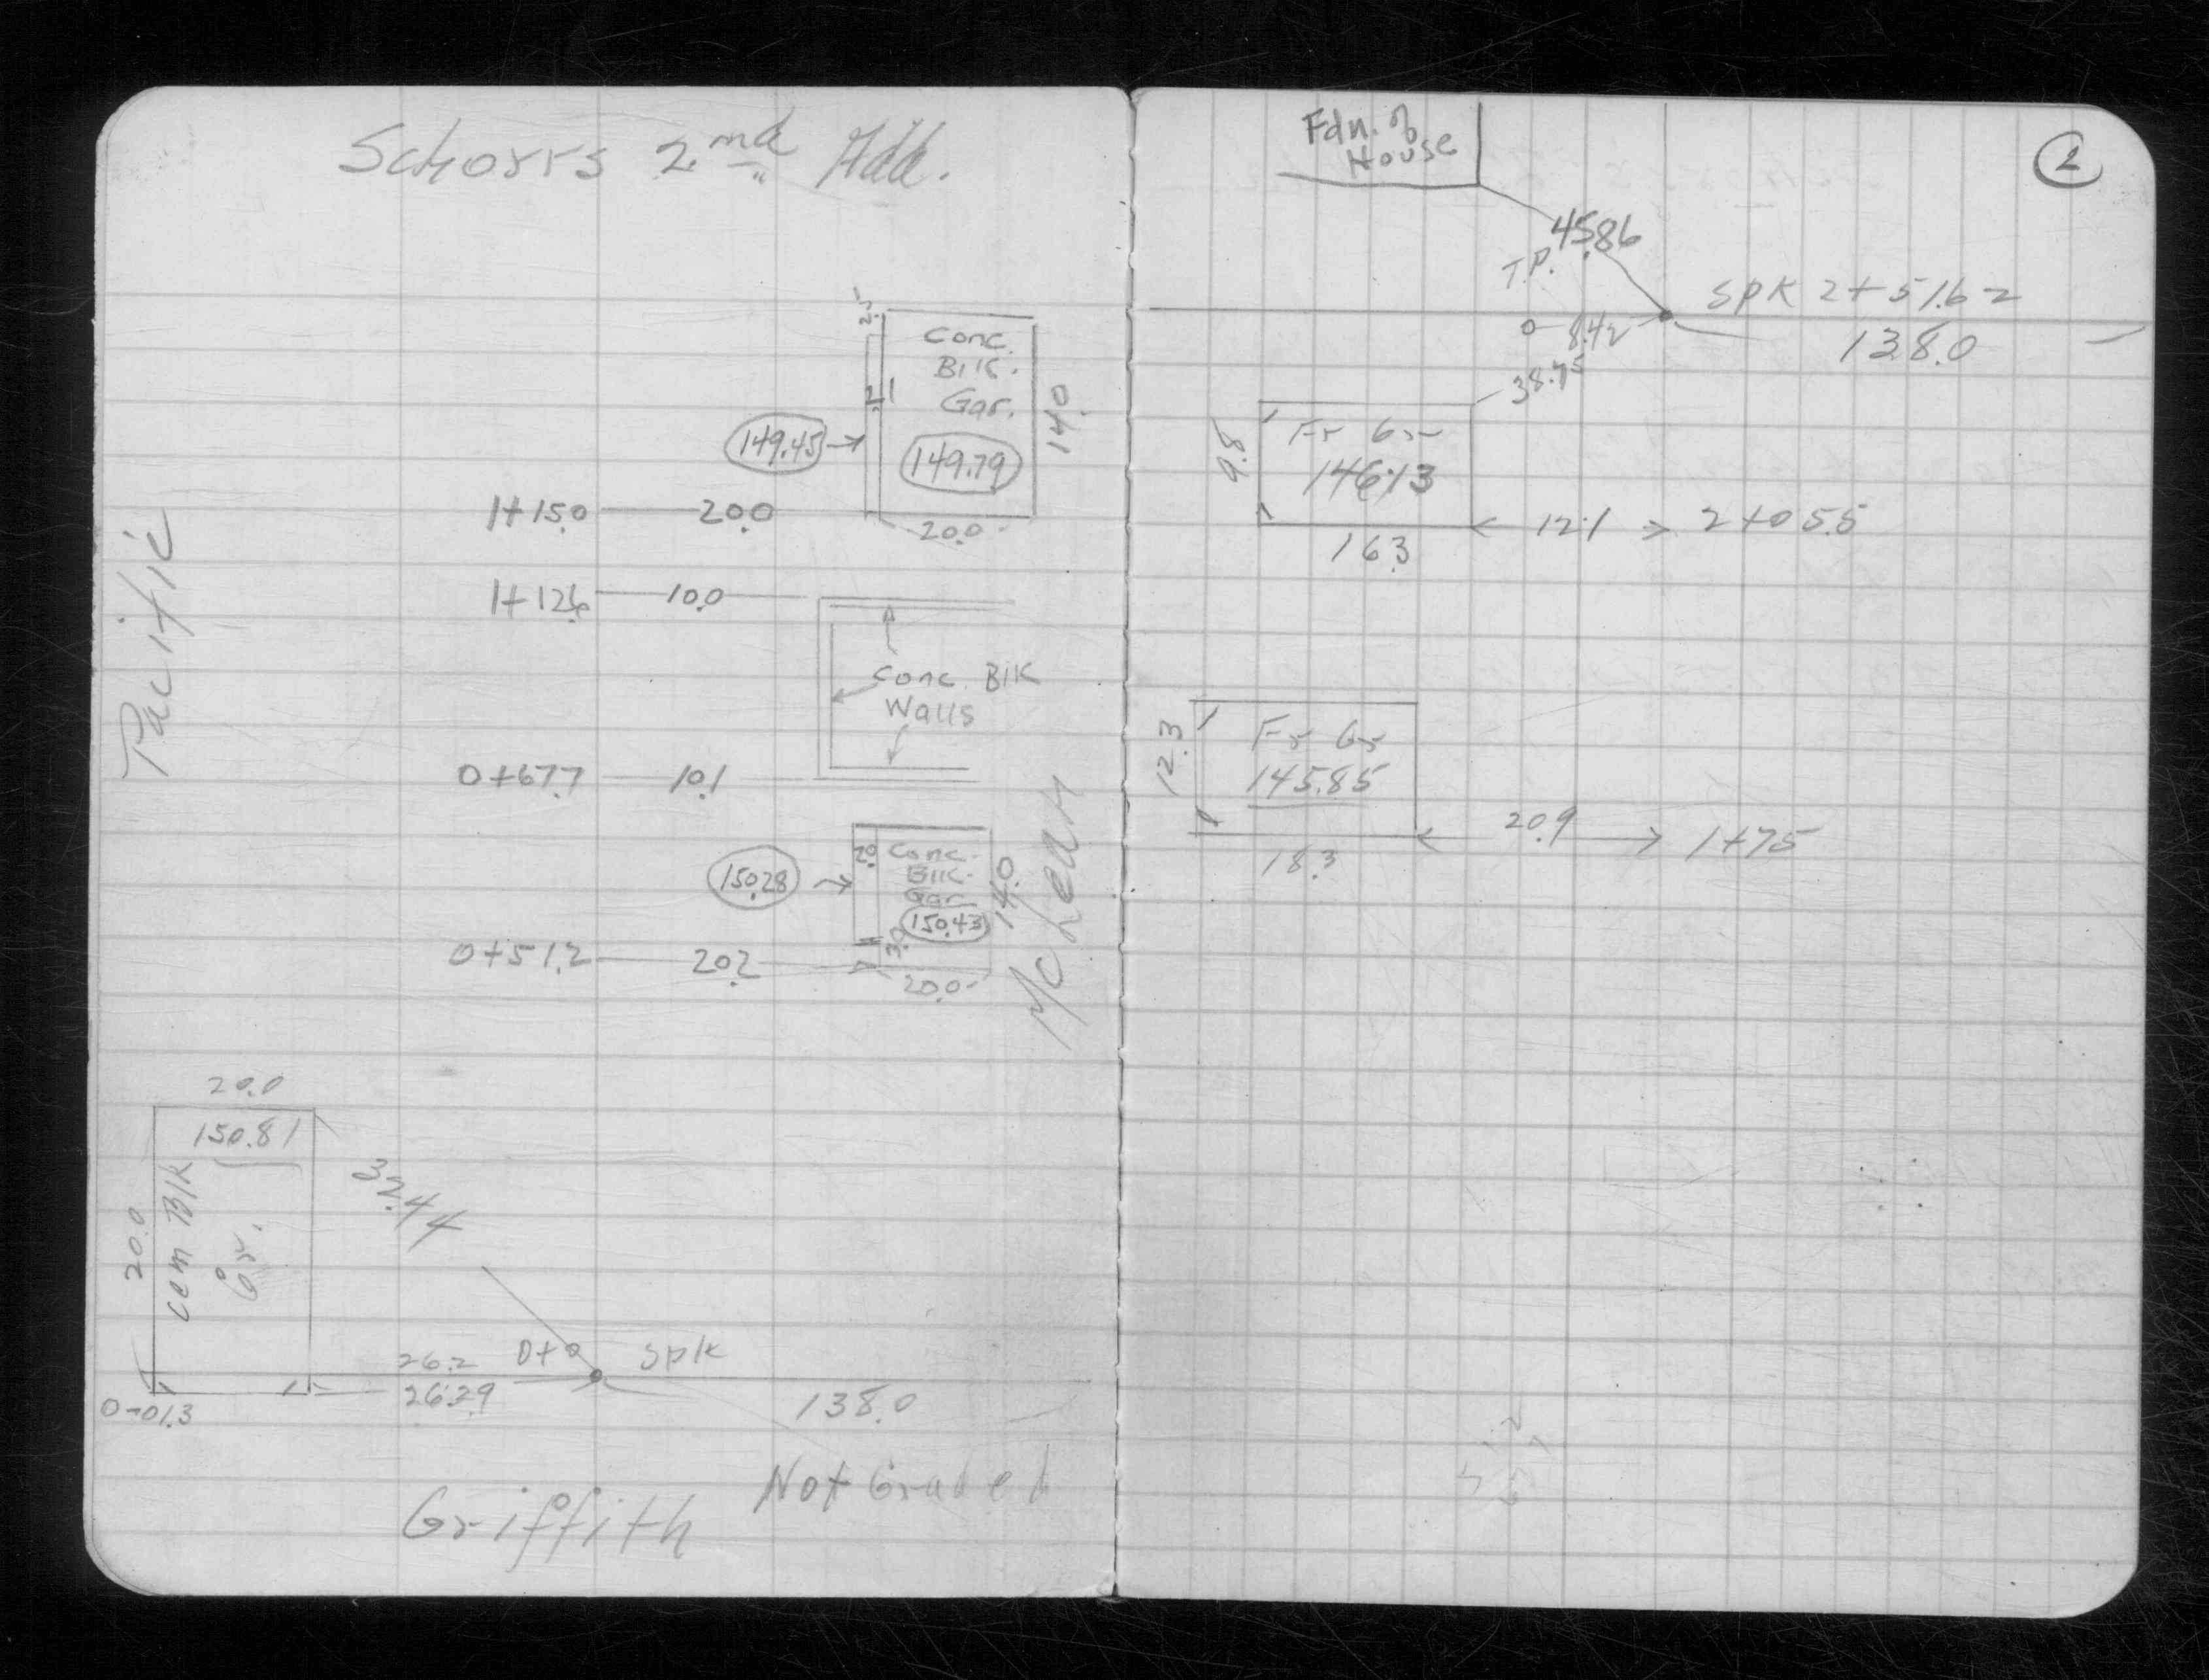 Schorrs 2nd Add.
2.1
Conc.
Blk.
Gar.
149.45
149.79
14.0
1+15.0 20.0
20.0
1+12.6 10.0
Conc. Blk
Walls
Pacific
0+67.7 10.1
2.0
Conc.
Blk.
Gar
150.28
150.43
14.0
3.0
0+51.2 20.2
20.0
McLean
20.0
150.81
Cem Blk
Gr.
20.0
32.44
26.2 0+0 Spk
26.29
0-01.3
138.0
Not Graded
Griffith
2
Fdn. of
House
45.86
T.P.
Spk 2+51.62
8.42
138.0
38.75
Fr Gr
146.13
9.8
12.1 2+05.5
16.3
Fr Gr
145.85
12.3
20.9 1+75
18.3